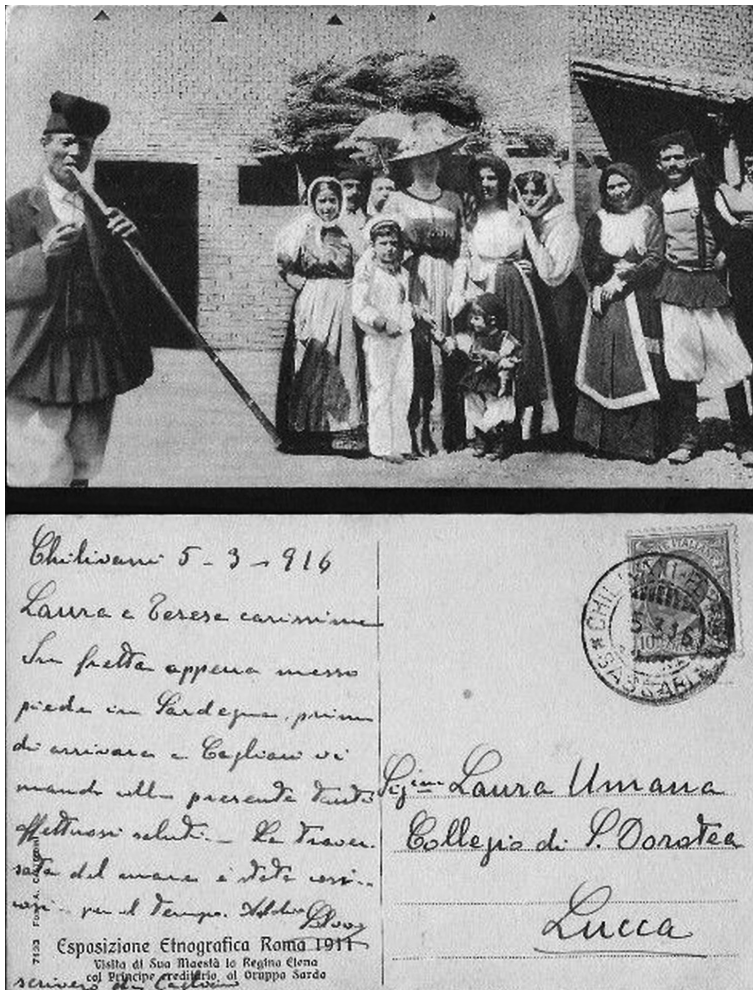 Chilivani 5 - 3 - 916
Laura e Teresa carissime
In fretta appena messo
piede in Sardegna, prima
di arrivare a Cagliari vi
mando colla presente tanti
affettuosi saluti. — La traver-
sata del mare è stata così..
così.. per il tempo. Addio
scriverò da Cagliari
7133 Fot. A.
Esposizione Etnografica Roma 1911
Visita di Sua Maestà la Regina Elena
col Principe ereditario, al Gruppo Sardo
CHILIVANI-FERR
5.3.16
* SASSARI *
10
Sig.ine Laura Umana
Collegio di S. Dorotea
Lucca